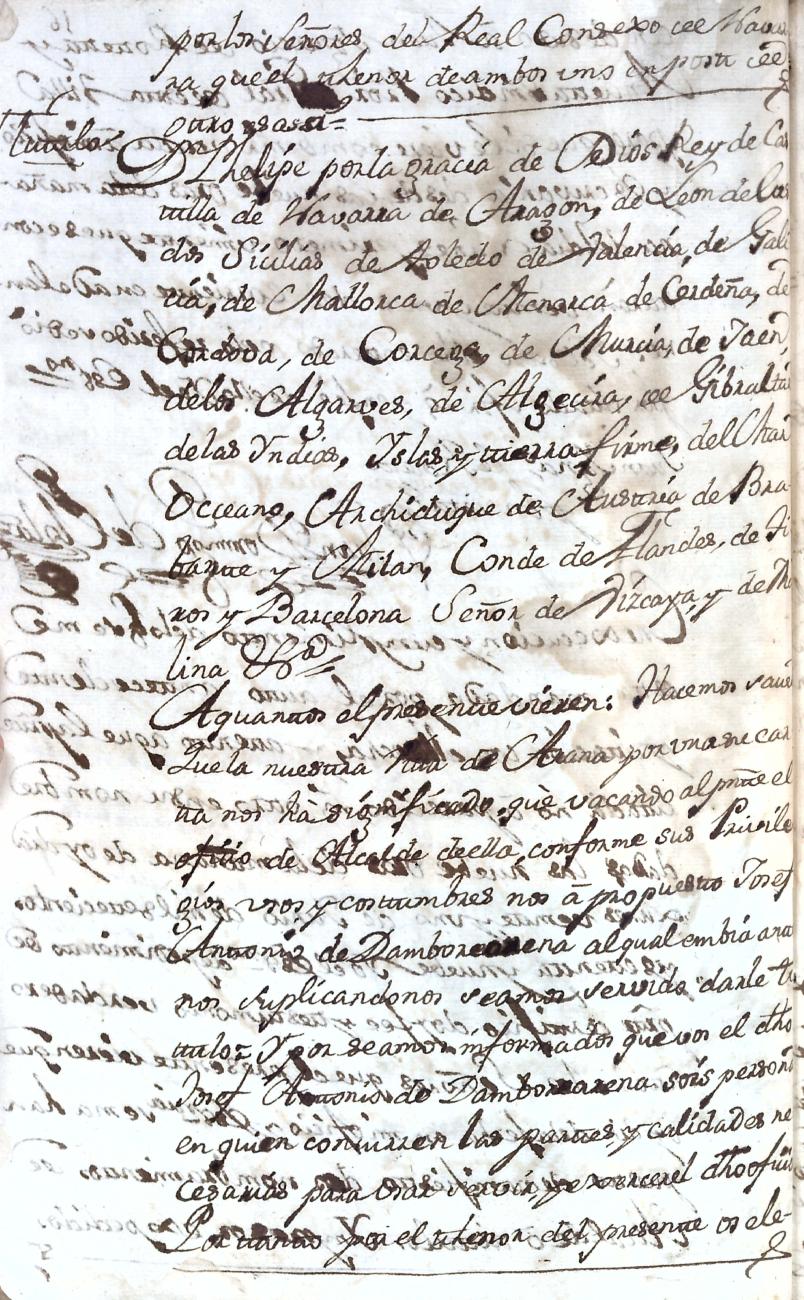 por los Señores del Real Consexo de Navar
ra, que el thenor de ambos uno en posti de
otro es assi=
Titulo
D. Phelipe por la gracia de Dios Rey de Cas
tilla de Navarra de Aragon, de Leon de las
dos Sicilias de toledo de Valencia, de Gali
tia, de Mallorca de Menorca de Cerdeña, de
Cordova, de Corcega, de Murcia, de Jaen,
de los Algarves, de Algecira, de Gibraltar
de las Yndias, Yslas y tierra firme, del Mar
Occeano, Archiduque de Austria de Bra-
bante y Milan, Conde de Flandes, de Ti
ros y Barcelona Señor de Vizcaya, y de Mo
lina &ª
A quantos el presente vieren: Hacemos saver
Que la nuestra Villa de Arana por una se car
ta nos ha significado, que vacando al pnte el
offitio de Alcalde de ella, conforme sus Privile
gios usos y costumbres nos á propuesto Josef
Antonio de Damborearena al qual embia ante
nos suplicandonos seamos servido darle ti
titulo= Y por seamos informados que vos el dho
Josef Antonio de Damborearena sois persona
en quien concurren las partes y calidades ne
cesarias para usar servir y exercer el dho ofizio
Por tanto por el thenor del presente os ele-